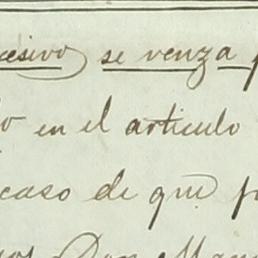 cesivo se venza p
o en el articulo
caso de que p
Don Man